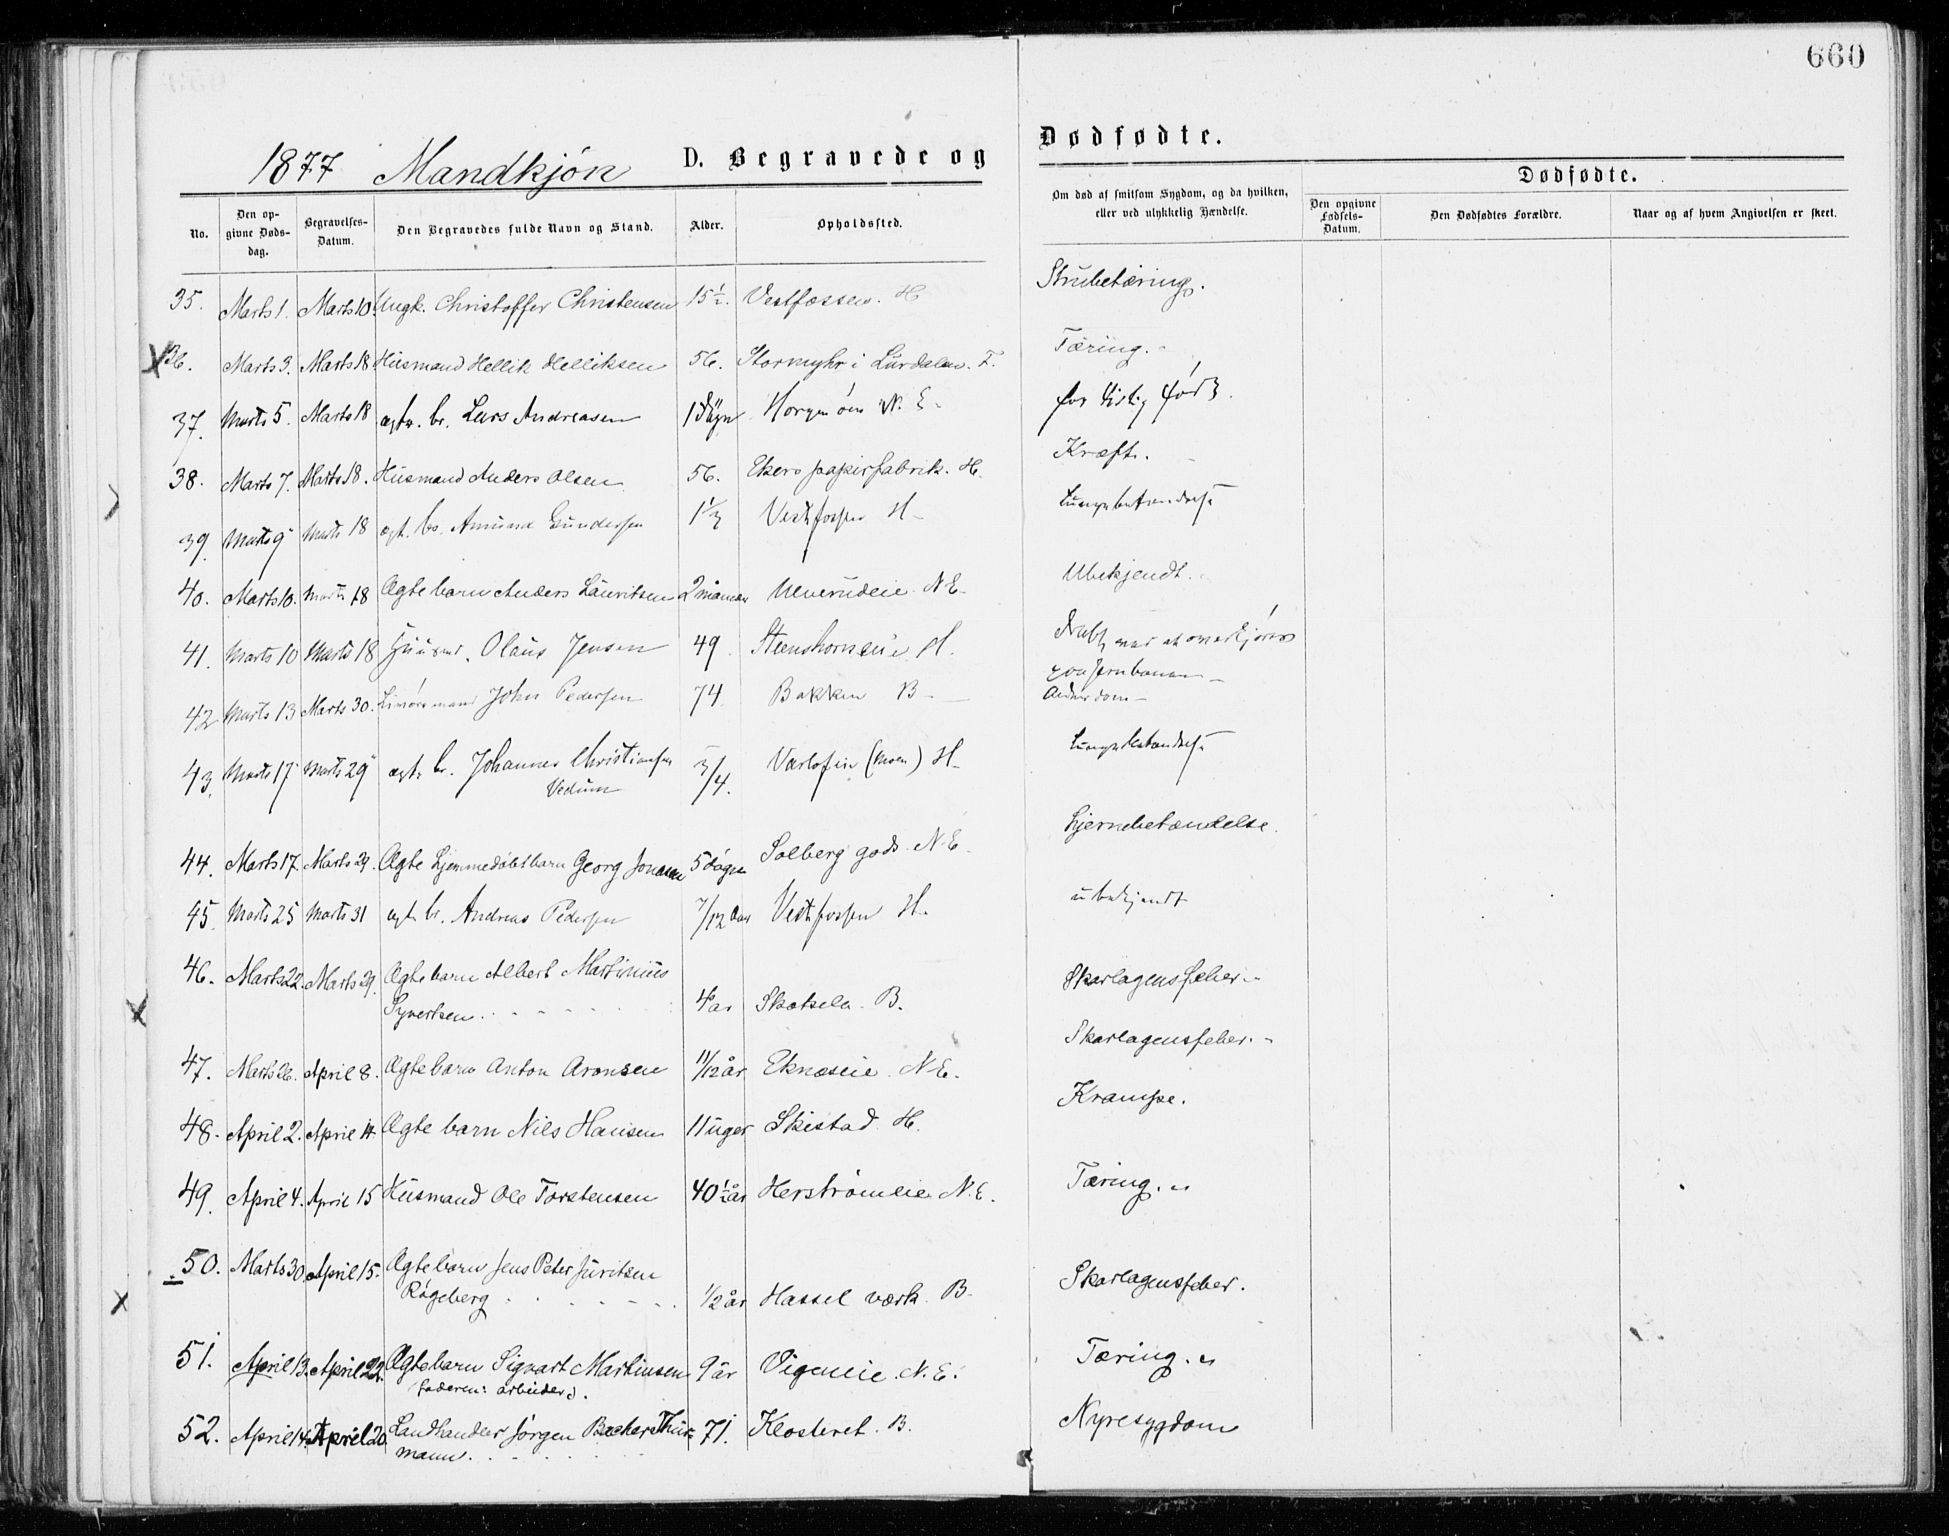 660
1877 Mandkjön D. Begravede og Dødfødte.
Dødfødte.
No.
Den opgivne Dødsdag.
Begravelses-Datum.
Den Begravedes fulde Navn og Stand.
Alder.
Opholdssted.
Om død af smitsom Sygdom, og da hvilken, eller ved ulykkelig Hændelse.
Den opgivne Fødsels-Datum.
Den Dødfødtes Forældre.
Naar og af hvem Angivelsen er skeet.
35. Marts 1. Marts 10. Ungk. Christoffer Christensen 15½. Vestfossen. H Strubetæring.
36. Marts 3. Marts 18. Husmand Hellik Helliksen 56. Stormyhr i Lurdalen. F. Tæring.
37. Marts 5. Marts 18 ægte. br. Lars Andreasen 1 Døgn Horgenöen N. E. for tidlig född.
38. Marts 7. Marts 18. Husmand Anders Olsen 56. Ekers papirfabrik. H. Kræft.
39. Marts 9 Marts 18 ægt. br. Amund Gundersen 1⅓ Vestfossen H Lungebetændelse
40. Marts 10. Marts 18 Ægte barn Anders Lauritsen 2 maaneder Ulverudeie N.E. Ubekjendt.
41. Marts 10 Marts 18 Huusmd. Olaus Jensen 49 Steenshorneie H. Dræbt ved at overkjøres
paa Jernbanen
42 Marts 13 Marts 30. John Pedersen 74 Bakken B Alderdom
43. Marts 17 Marts 29 ægte br. Johannes Christiansen 3/4. Varlofin (Moen) H Lungebetændelse
Vedum
44. Marts 17. Marts 29. Ægte hjemmedøbt barn Georg Jonasen 5 døgn Solberg gods. N.E. Hjernebetændelse.
45. Marts 25 Marts 31 ægte br. Andreas Pedersen 7/12 Aar Vestfossen H. ubekjendt
46. Marts 22. Marts 29. Ægte barn Albert Martinius
Syvertsen. 4 ar Skotselv. B. Skarlagensfeber.
47. Marts 26. April 8. Ægte barn Anton Aronsen 11/12 år Eknæseie. N.E. Skarlagensfeber.
48. April 2. April 11. Ægte barn Nils Hansen 11 uger Skistad. H. Krampe.
49. April 4. April 15 Husmand Ole Torstensen 40½ år Herstrømeie N.E. Tæring.
50. Marts 30 April 15. Ægte barn Jens Peter Juritsen
Røgeberg 1/2 år Hassel værk. B. Skarlagensfeber.
51. April 13. April 22. Ægte barn Sigvart Martinsen 9 år Vigeneie. N.E. Tæring.
(faderen: arbeider).
52. April 14. April 20. Landhandler Jørgen Backers Thur- 71. Klosteret. B. Nyresygdom
mann.